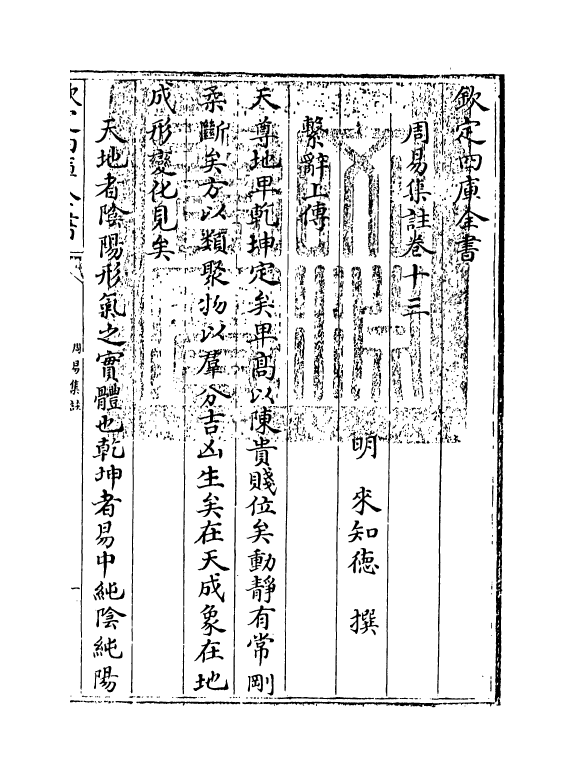 欽定四庫全書
周易集註卷十三
明 來知德 撰
繫辭上傳
天尊地卑乾坤定矣卑高以陳貴賤位矣動靜有常剛
柔斷矣方以類聚物以羣分吉凶生矣在天成象在地
成形變化見矣
天地者陰陽形氣之實體也乾坤者易中純陰純陽
欽定四庫全書
周易集註
一